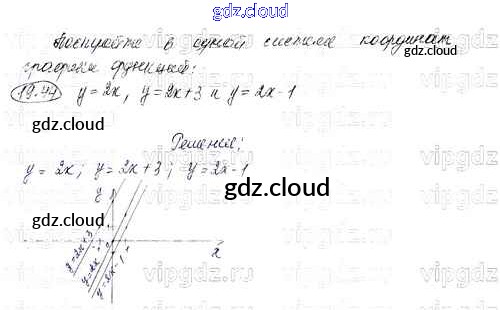 gdz.cloud
Постройте в одной системе координат
графики функций:
gdz.cloud
19.44 y = 2x, y = 2x+3 и y = 2x-1
gdz.cloud
Решение:
y = 2x; y = 2x+3; y = 2x-1
gdz.cloud
y
gdz.cloud
x
y=2x+3
y=2x
y=2x-1
gdz.cloud
vipgdz.ru